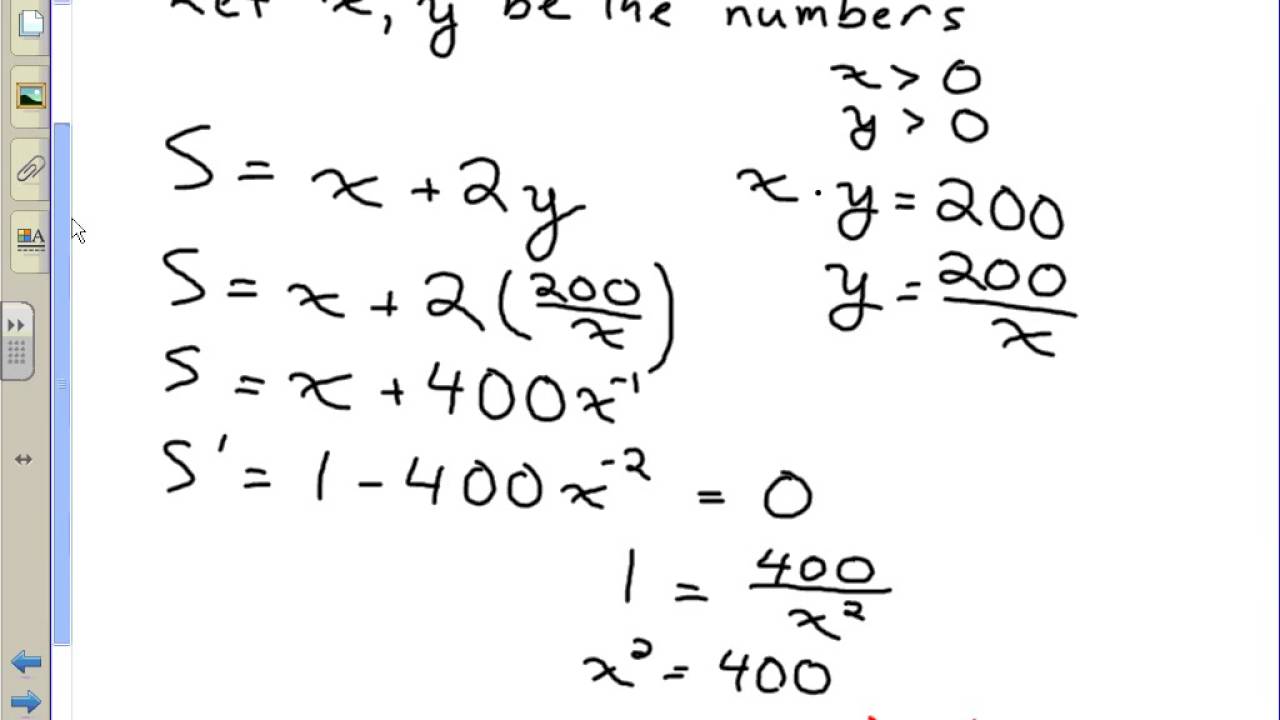 Let x, y be the numbers
x > 0
y > 0
S = x + 2y
x · y = 200
S = x + 2(200/x)
y = 200/x
S = x + 400x⁻¹
S' = 1 - 400x⁻² = 0
1 = 400/x²
x² = 400